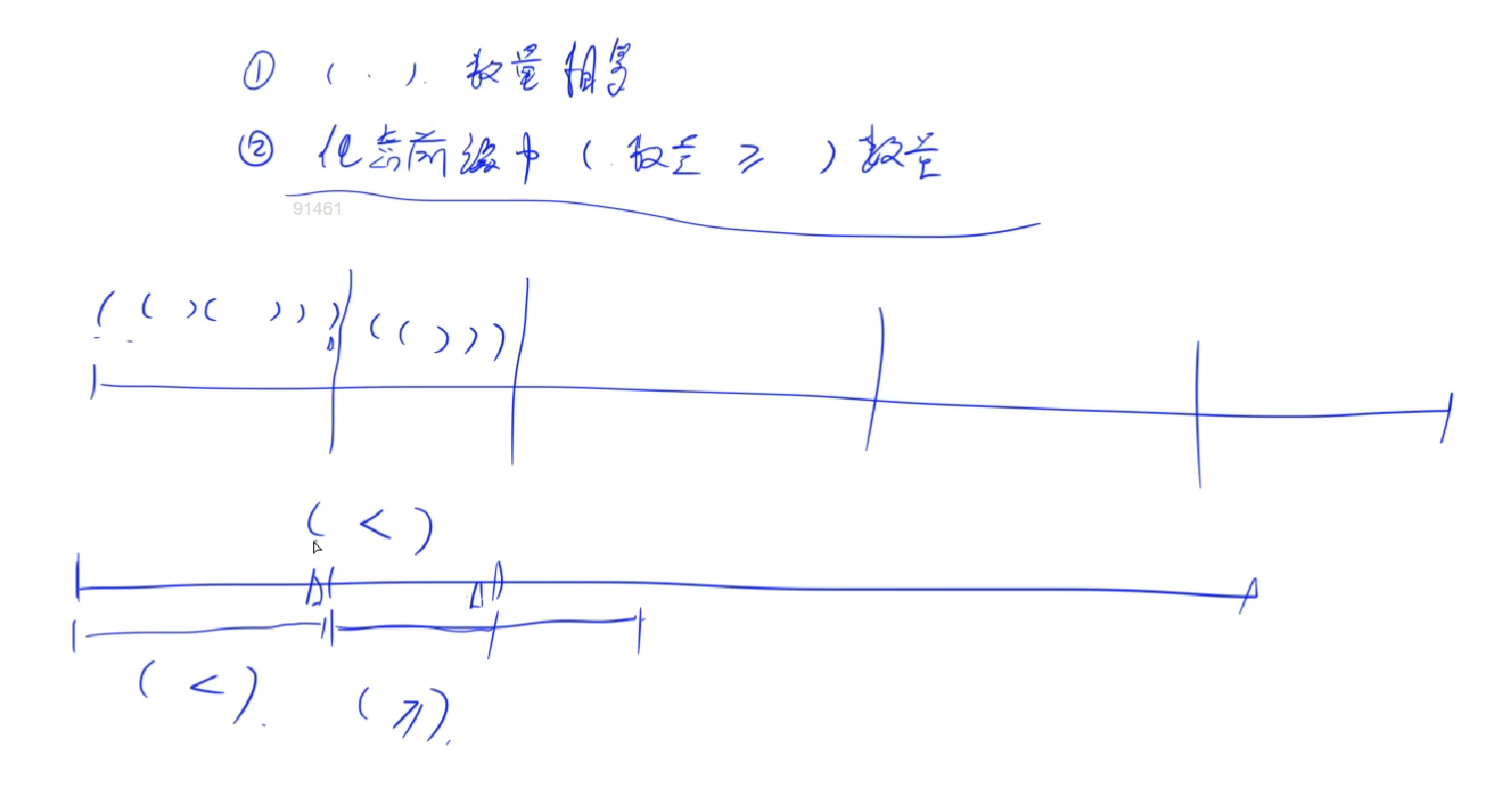 ① ( . ) . 数量相等
② 任意前缀中 ( . 数量 ≥ ) 数量
91461
( ( ) ( ) ) ) ( ( ) ) )
( < )
( < ) . ( ≥ ) .